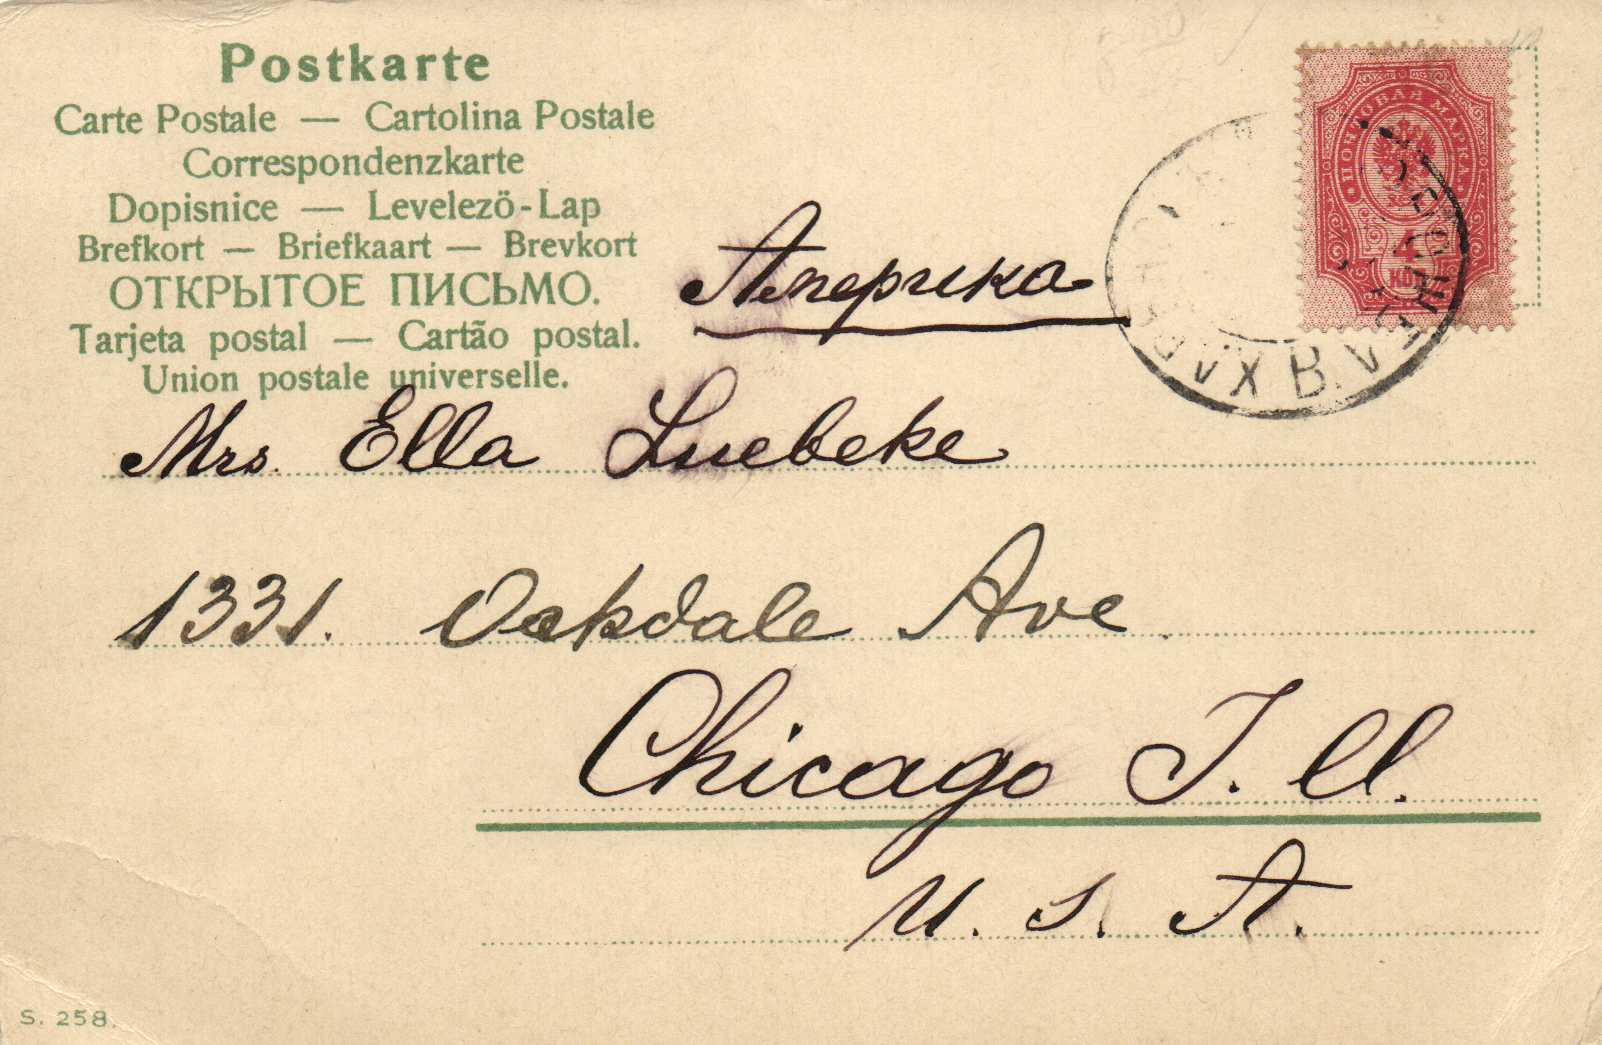 Postkarte
Carte Postale — Cartolina Postale
Correspondenzkarte
Dopisnice — Levelezö-Lap
Brefkort — Briefkaart — Brevkort
ОТКРЫТОЕ ПИСЬМО.
Tarjeta postal — Cartão postal.
Union postale universelle.
ПОЧТОВАЯ МАРКА
4
КОП
Америка
Mrs. Ella Luebeke
1331. Oakdale Ave.
Chicago I. Ill.
U. S. A.
S. 258.